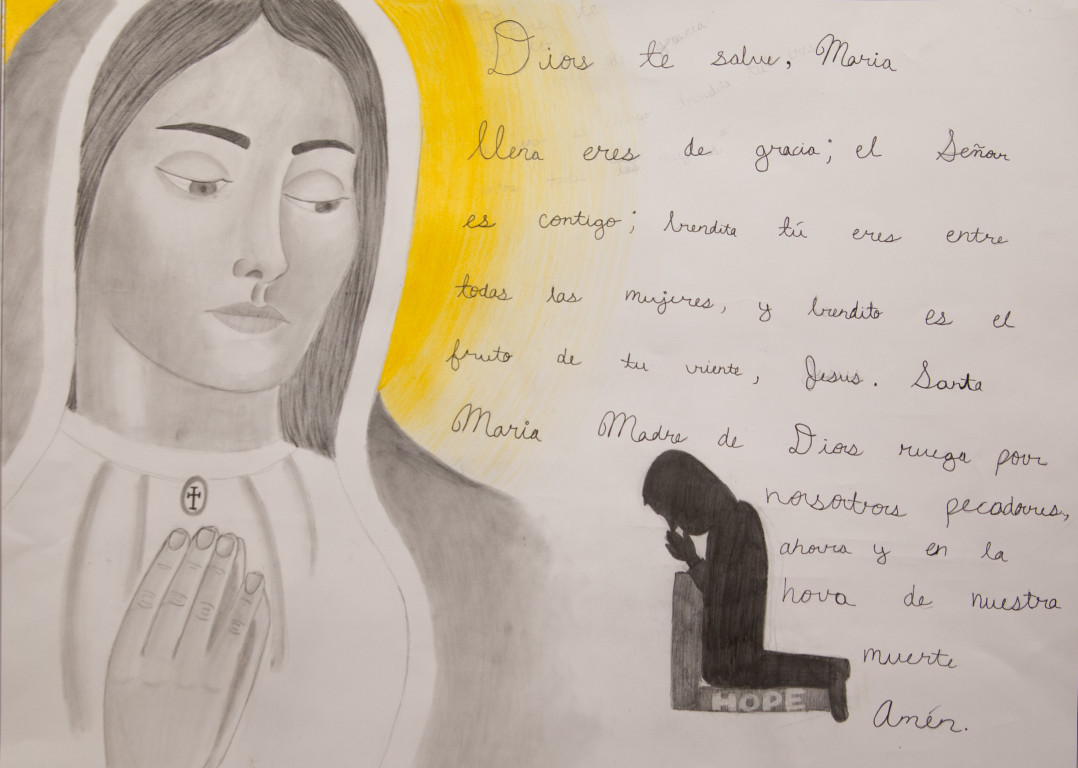 Dios te salve, Maria
llena eres de gracia; el Señor
es contigo; bendita tú eres entre
todas las mujeres, y bendito es el
fruto de tu viente, Jesus. Santa
Maria Madre de Dios ruega por
nosotros pecadores,
ahora y en la
hora de nuestra
muerte
HOPE
Amén.